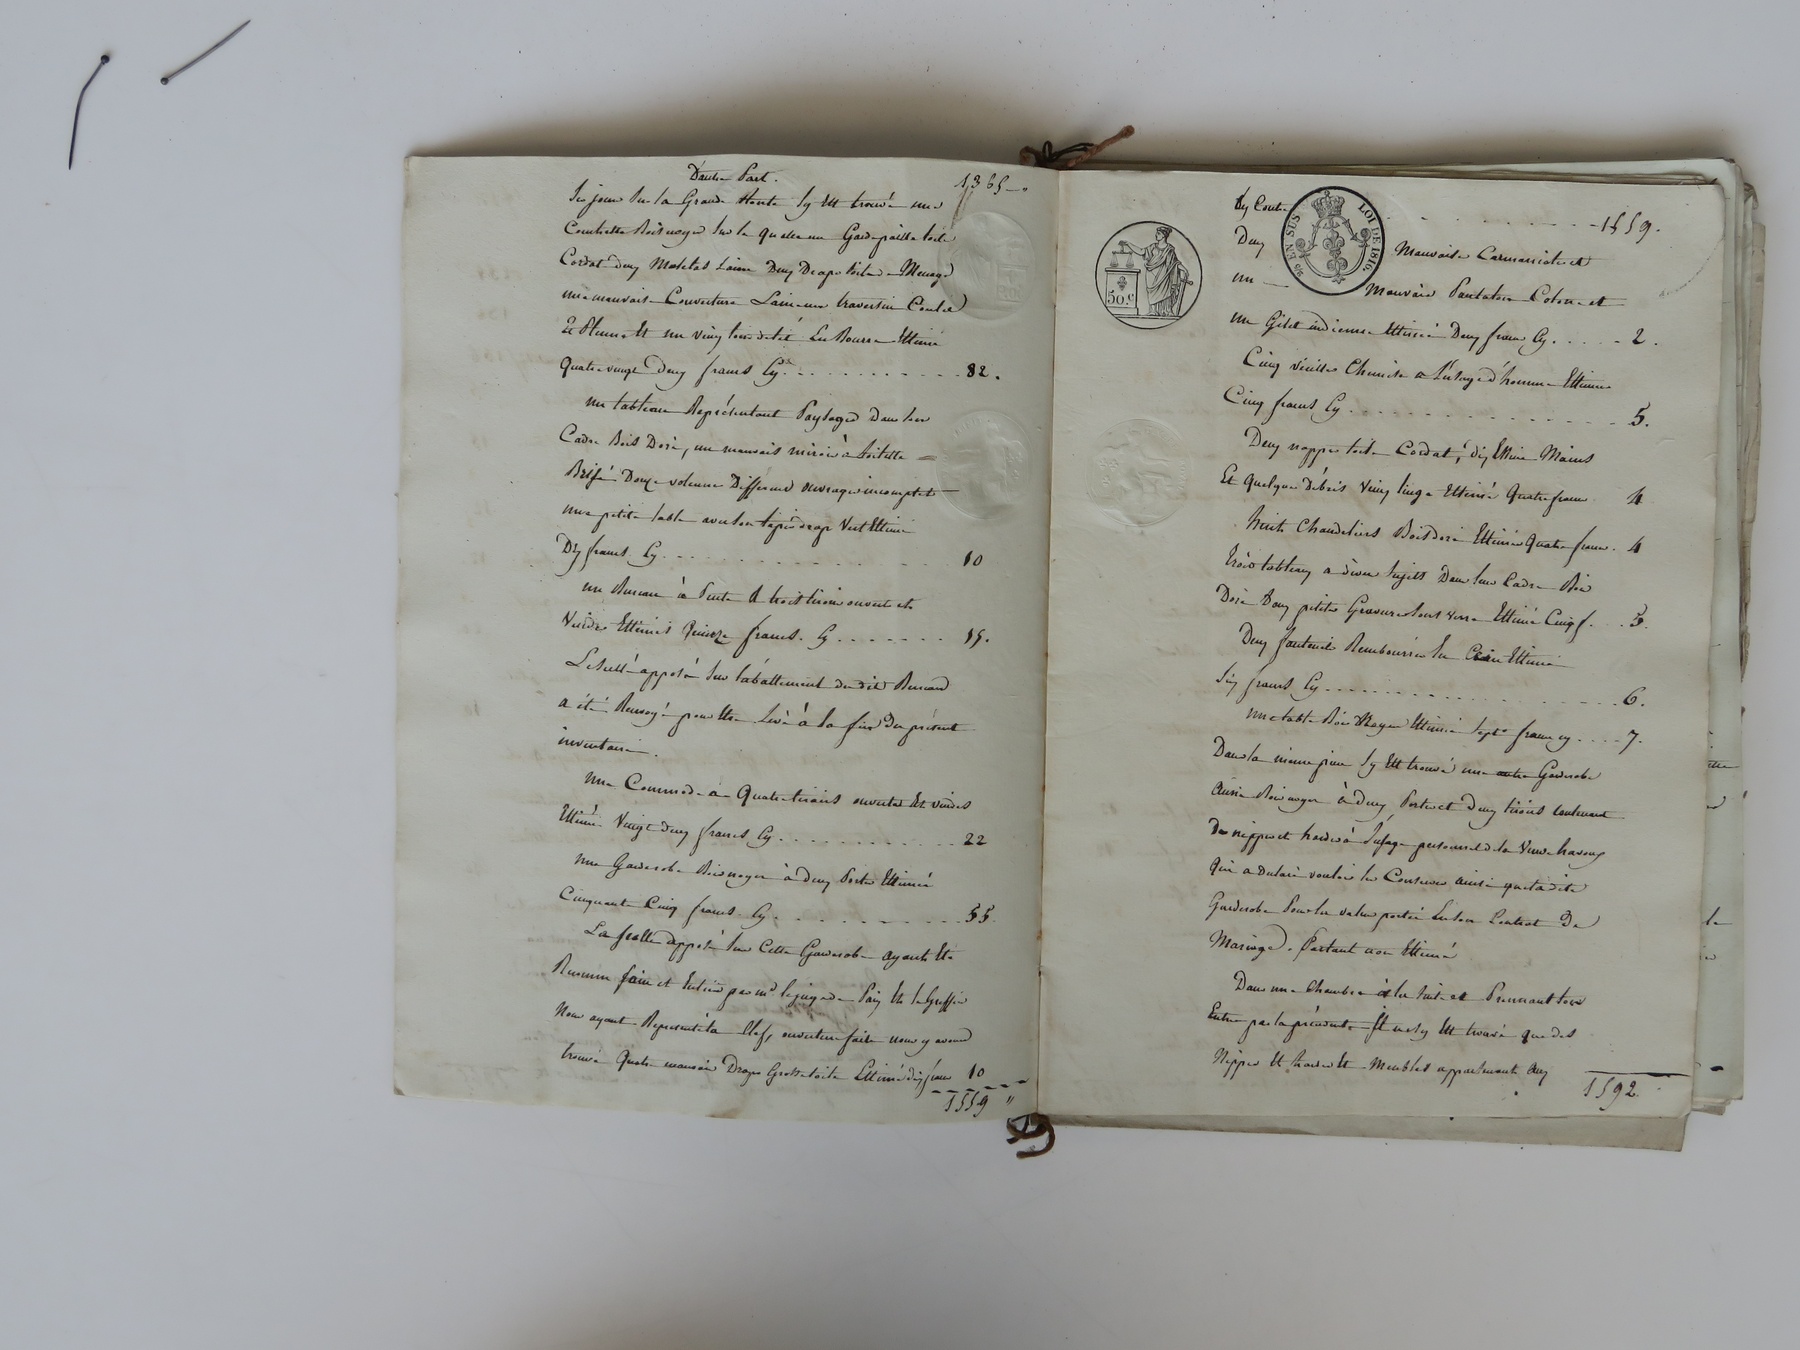 D'autre Part. 1,365 — "
jour sur la Grande Route s'y est trouvé une
Couchette Bois noyer sur la quelle un Gardepaille toile
Cordat deux Matelas Laine Deux Draps toile Menage
une mauvaise Couverture Laine un traversin Coutil
et Plume Et un vieux tour de lit La Bourse Estimé
Quatrevingt deux francs Cy. 82.
un tableau Représentant Paysage dans son
Cadre Bois Doré, un mauvais miroir à toilette
Brisé Douze volumes Différends ouvrages incomplets
une petite table avec son tapis drap Vert Estimé
Dix francs Cy. 10
un Bureau à Pente & trois tiroirs ouverts et
Vuides Estimés Quinze francs. Cy 15.
Le scellé apposé sur l'abattement du dit Bureau
a été Renvoyé pour être Levé à la fin du présent
inventaire.
une Commode a Quatre tiroirs ouverte Et vuides
Estimé Vingt deux francs Cy 22
une Garderobe Bois noyer à deux Portes Estimée
Cinquante Cinq francs Cy. 55.
Le scellé apposé sur Cette Garderobe ayant été
Reconnu sain et Entier par mr le juge de Paix Et le Greffier
Nous ayant Représenté la Clef, ouverture faite nous y avons
trouvé Quatre mauvais Draps Grosse toile Estimé dix francs 10
1559 "
Cy Contre 1559.
Deux Mauvaises et
un Mauvais Pantalon Coton et
un Gilet indienne Estimés Deux francs Cy. 2.
Cinq vieilles Chemises a L'usage d'homme Estimées
Cinq francs Cy 5.
Deux nappes toile Cordat, dix Essuie Mains
Et Quelques Débris vieux linge Estimés Quatre francs 4
huit Chandeliers Bois doré Estimés Quatre francs. 4
trois tableaux a divers sujets Dans leur Cadre Bois
Doré Deux petites Gravures sous verre Estimé Cinq f. 5.
Deux fauteuils Rembourrés En Crin Estimés
Six francs Cy 6.
une table Bois Noyer Estimée Sept francs cy 7.
Dans la même pièce s'y Est trouvé une autre Garderobe
aussi Bois noyer à deux Portes et deux tiroirs contenant
des nippes et hardes à l'usage personnel de la Veuve
qui a déclaré vouloir les Conserver ainsi que la dite
Garderobe Pour la valeur portée En son Contrat De
Mariage. Partant non Estimé
Dans une Chambre à la suite et Prennant son
Entrée par la précédente Il ne s'y Est trouvé que des
Nippes Et hardes Et Meubles appartenants aux
1592.
50 c
25 EN SUS LOI DE 1816.